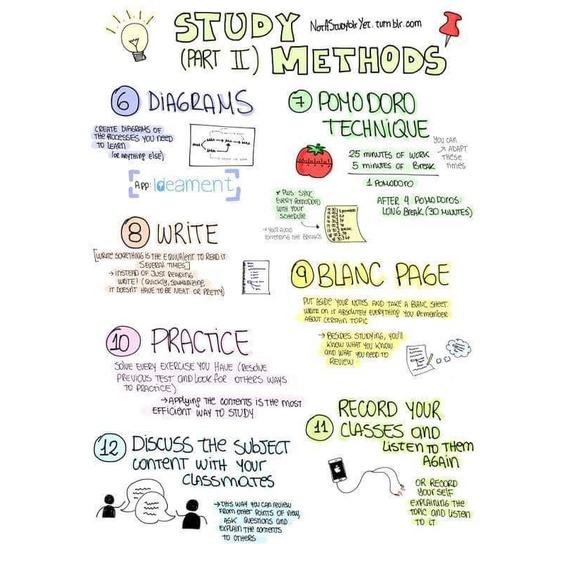 STUDY
(PART II) METHODS
6 DIAGRAMS
CREATE DIAGRAMS OF
THE PROCESSES YOU NEED
TO LEARN
(or anything else)
App: Ideament
7 POMODORO
TECHNIQUE
YOU CAN
→ ADAPT
THESE
TIMES
25 minutes of work
5 minutes of break
1 POMODORO
AFTER 4 POMODOROS:
LONG BREAK (30 MINUTES)
* PLUS: SYNC
EVERY POMODORO
WITH YOUR
SCHEDULE
8 WRITE
[WRITE SOMETHING IS THE EQUIVALENT TO READ IT
SEVERAL TIMES]
→ INSTEAD OF JUST READING
WRITE! (QUICKLY, SUMMARIZING
IT DOESN'T HAVE TO BE NEAT OR PRETTY)
9 BLANC PAGE
PUT ASIDE YOUR NOTES AND TAKE A BLANC SHEET
WRITE ON IT ABSOLUTELY EVERYTHING YOU REMEMBER
ABOUT CERTAIN TOPIC
→ BESIDES STUDYING, YOU'LL
KNOW WHAT YOU KNOW
AND WHAT YOU NEED TO
REVIEW
10 PRACTICE
SOLVE EVERY EXERCISE YOU HAVE (RESOLVE
PREVIOUS TEST AND LOOK FOR OTHERS WAYS
TO PRACTICE)
→ APPLYING THE CONTENTS IS THE MOST
EFFICIENT WAY TO STUDY
11 RECORD YOUR
CLASSES AND
LISTEN TO THEM
AGAIN
OR RECORD
YOURSELF
EXPLAINING THE
TOPIC AND LISTEN
TO IT
12 DISCUSS THE SUBJECT
CONTENT WITH YOUR
CLASSMATES
→ THIS WAY YOU CAN REVIEW
FROM OTHER POINTS OF VIEW,
ASK QUESTIONS AND
EXPLAIN THE CONTENTS
TO OTHERS